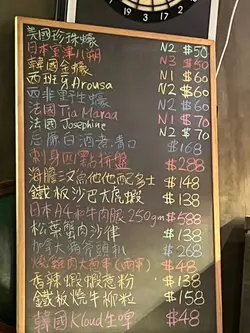 19 3 17
美國珍珠蠔 N2 $50
日本 N3 $50
韓國金蠔 N1 $60
西班牙Arousa N2 $60
南非野生蠔 N2 $60
法國Tia Maraa N1 $70
法國Josephine N2 $70
白酒煮青口 $168
刺身四點拼盤 $288
海膽三文魚他他配多士 $148
鐵板沙巴大虎蝦 $138
日本A4和牛肉眼250gm $588
松葉蟹肉沙律 $138
$268
$48
香辣蝦蝦意粉 $138
鐵板燒牛柳粒 $158
韓國Kloud生啤 $48